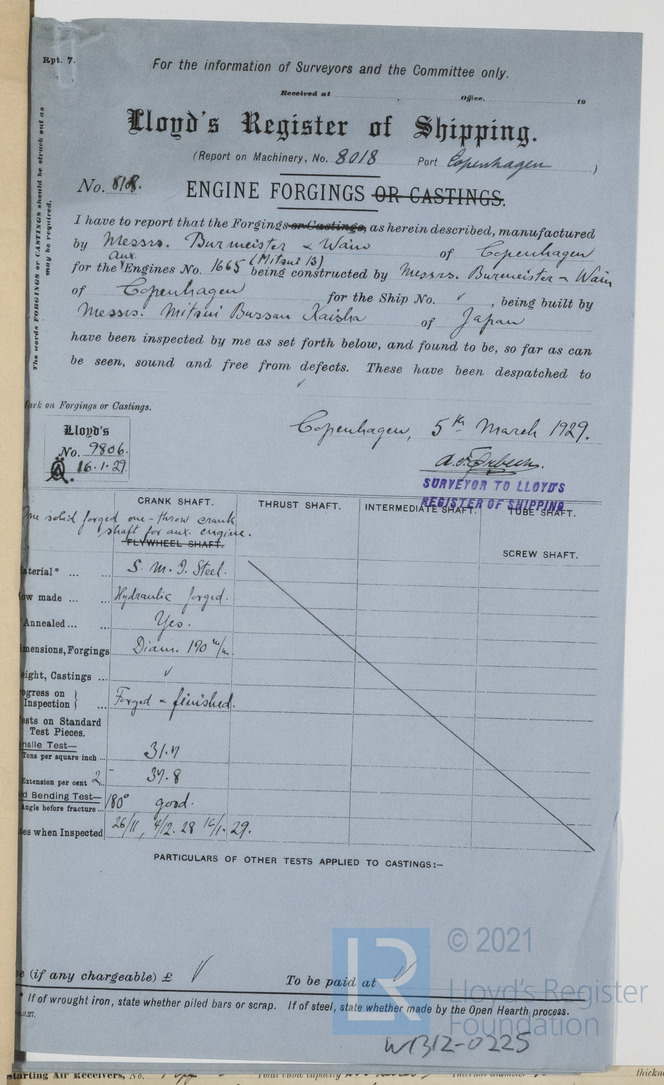 Rpt. 7.
For the information of Surveyors and the Committee only.
Received at Office, 19
Lloyd's Register of Shipping.
(Report on Machinery, No. 8018 Port Copenhagen )
No. 818. ENGINE FORGINGS OR CASTINGS.
The words FORGINGS or CASTINGS should be struck out as
may be required.
I have to report that the Forgings or Castings, as herein described, manufactured
by Messrs. Burmeister & Wain of Copenhagen
aux. (Mitsui 13)
for the Engines No. 1665 being constructed by Messrs. Burmeister & Wain
of Copenhagen for the Ship No. , being built by
Messrs. Mitsui Bussan Kaisha of Japan
have been inspected by me as set forth below, and found to be, so far as can
be seen, sound and free from defects. These have been despatched to
ark on Forgings or Castings.
Lloyd's
No. 9806.
16.1.29
Copenhagen, 5th March 1929.
SURVEYOR TO LLOYD'S
REGISTER OF SHIPPING
CRANK SHAFT. THRUST SHAFT. INTERMEDIATE SHAFT. TUBE SHAFT.
One solid forged one-throw crank
shaft for aux. engine.
FLYWHEEL SHAFT.
SCREW SHAFT.
aterial* ... ... S. M. I. Steel.
ow made ... ... Hydraulic forged.
Annealed ... ... Yes.
mensions, Forgings Diam. 190 m/m.
ight, Castings ...
ogress on
Inspection } ... Forged & finished.
ests on Standard
Test Pieces.
nsile Test—
Tons per square inch ... 31.7
Extension per cent 2" 37.8
d Bending Test—
Angle before fracture ... 180° good.
es when Inspected 26/11, 4/2. 28 16/1. 29.
PARTICULARS OF OTHER TESTS APPLIED TO CASTINGS:—
e (if any chargeable) £ To be paid at
* If of wrought iron, state whether piled bars or scrap. If of steel, state whether made by the Open Hearth process.
© 2021
LR
Lloyd's Register
Foundation
WB12-0225
Starting Air Receivers, No.